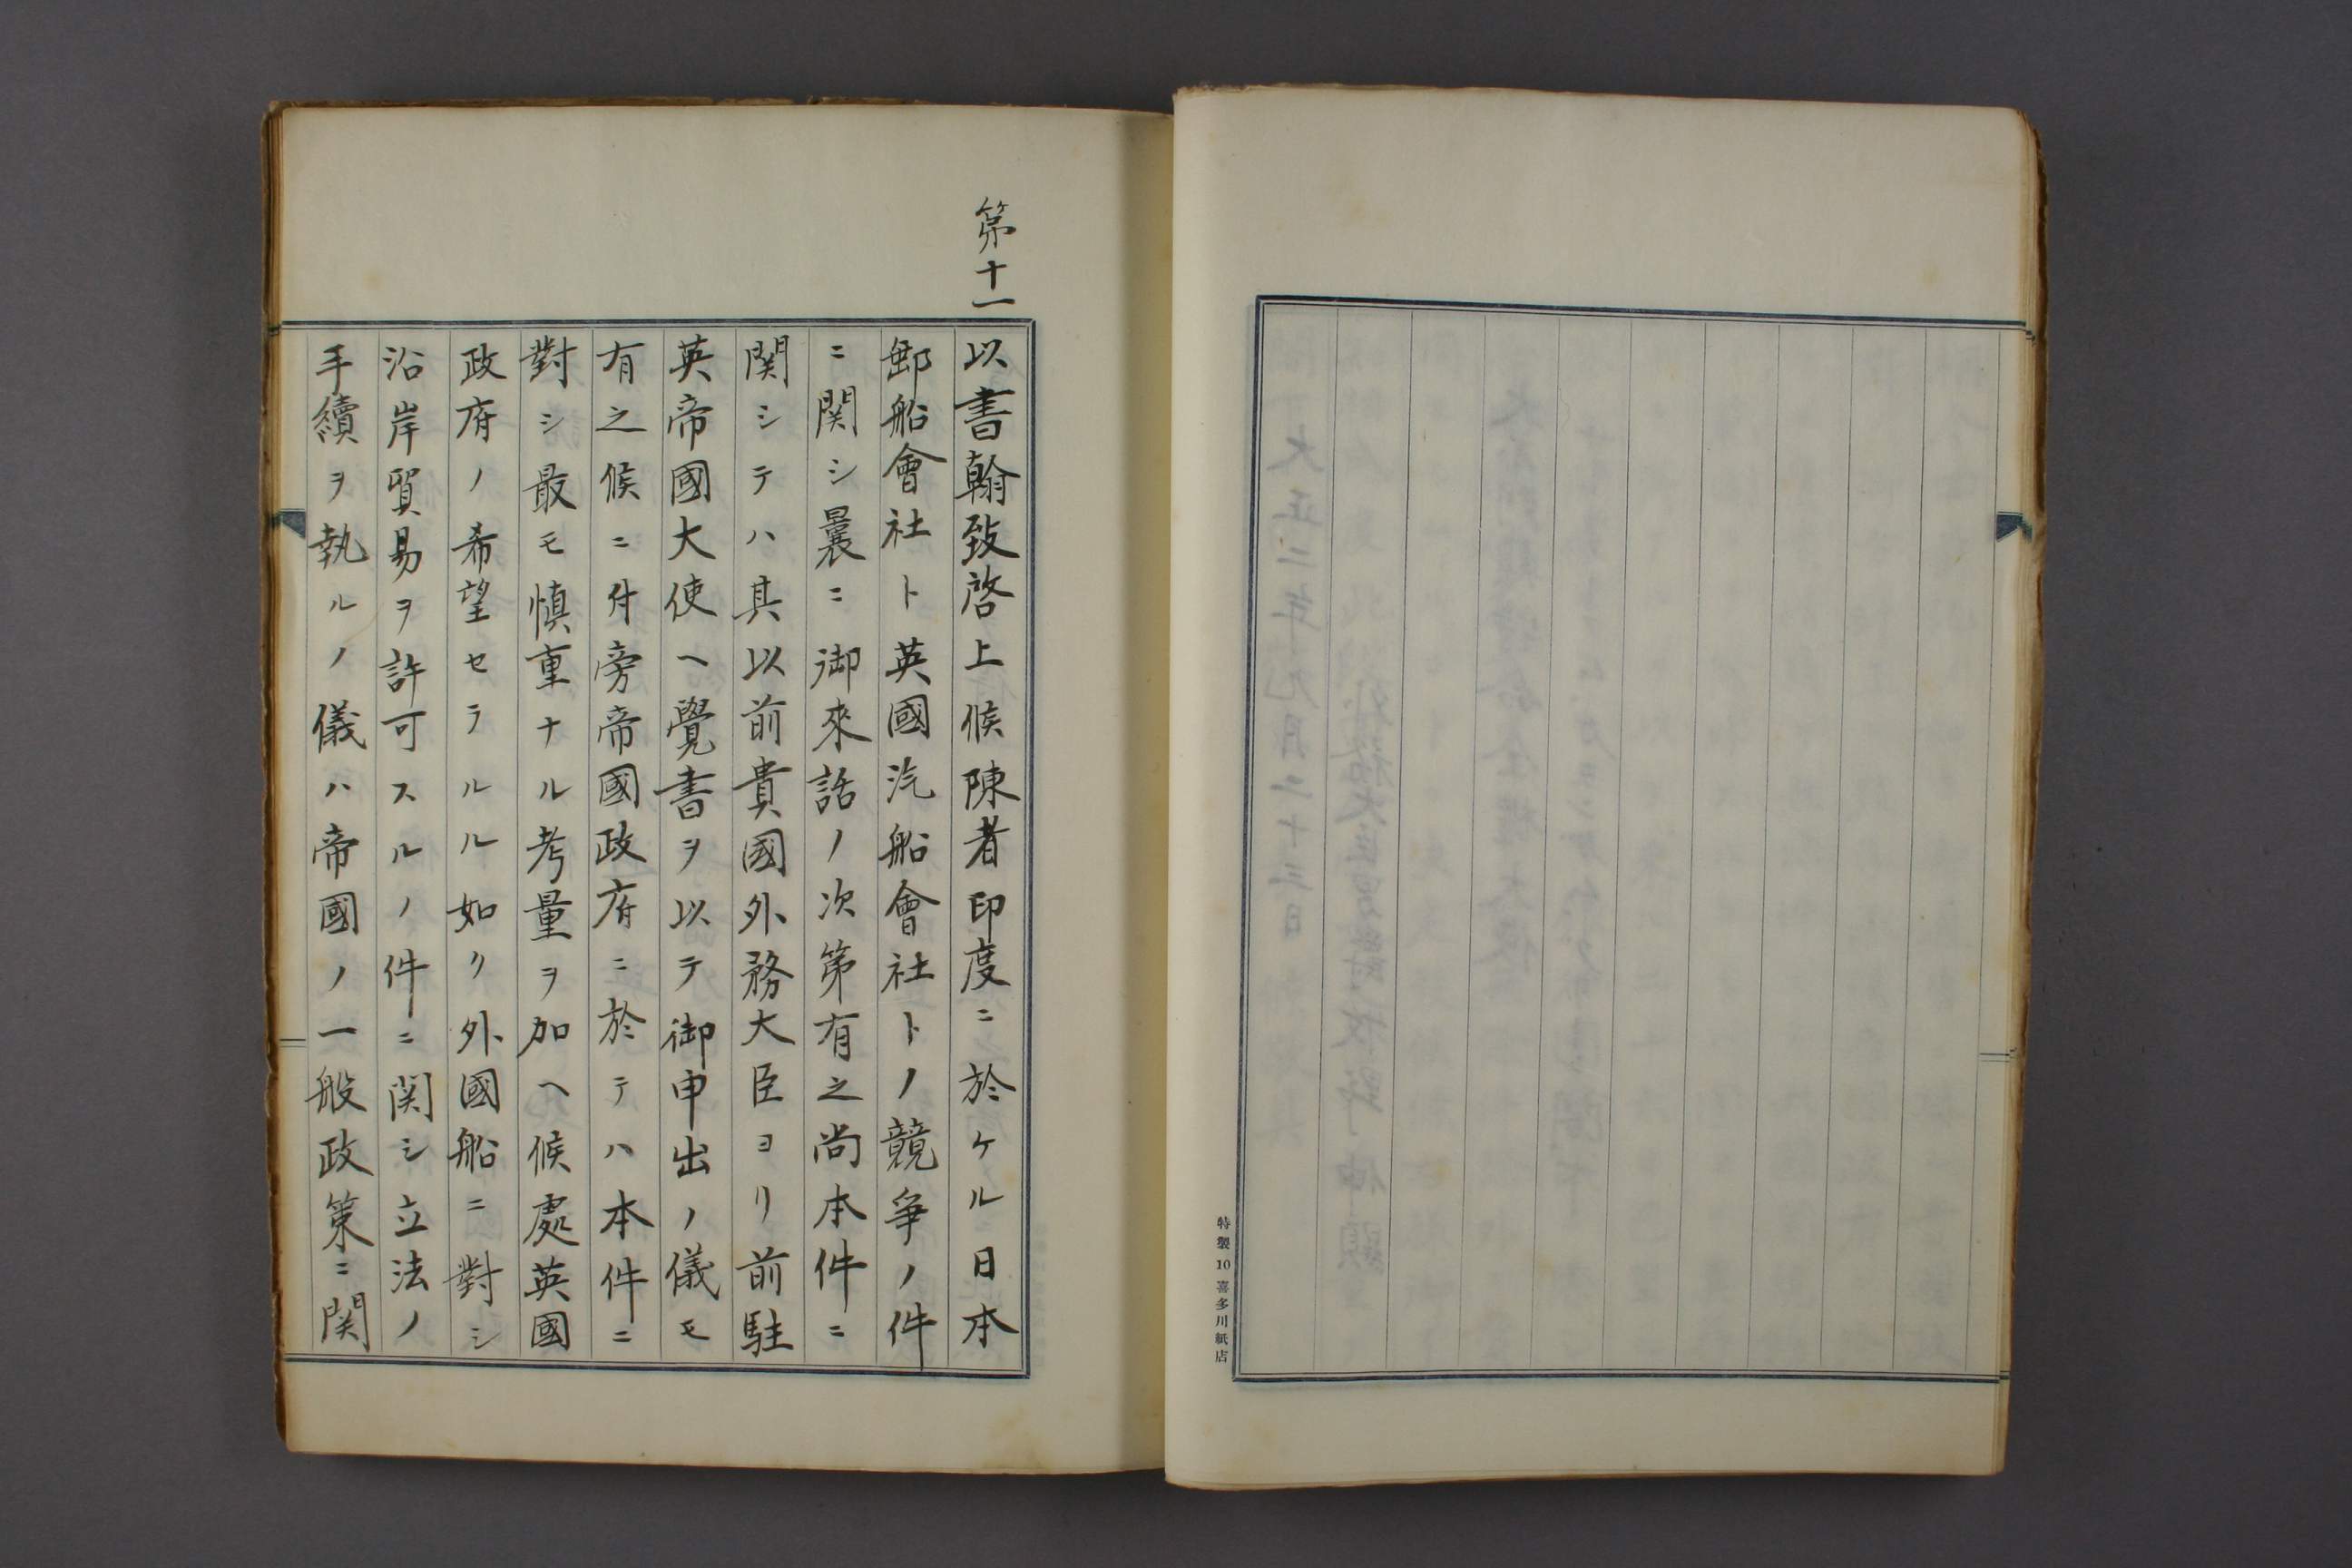 特製10喜多川紙店
第十一
以書翰致啓上候陳者印度ニ於ケル日本
郵船會社ト英國汽船會社トノ競爭ノ件
ニ関シ曩ニ御來話ノ次第有之尚本件ニ
関シテハ其以前貴國外務大臣ヨリ前駐
英帝國大使ヘ覺書ヲ以テ御申出ノ儀モ
有之候ニ付旁帝國政府ニ於テハ本件ニ
對シ最モ慎重ナル考量ヲ加ヘ候處英國
政府ノ希望セラルル如ク外國船ニ對シ
沿岸貿易ヲ許可スルノ件ニ関シ立法ノ
手續ヲ執ルノ儀ハ帝國ノ一般政策ニ関